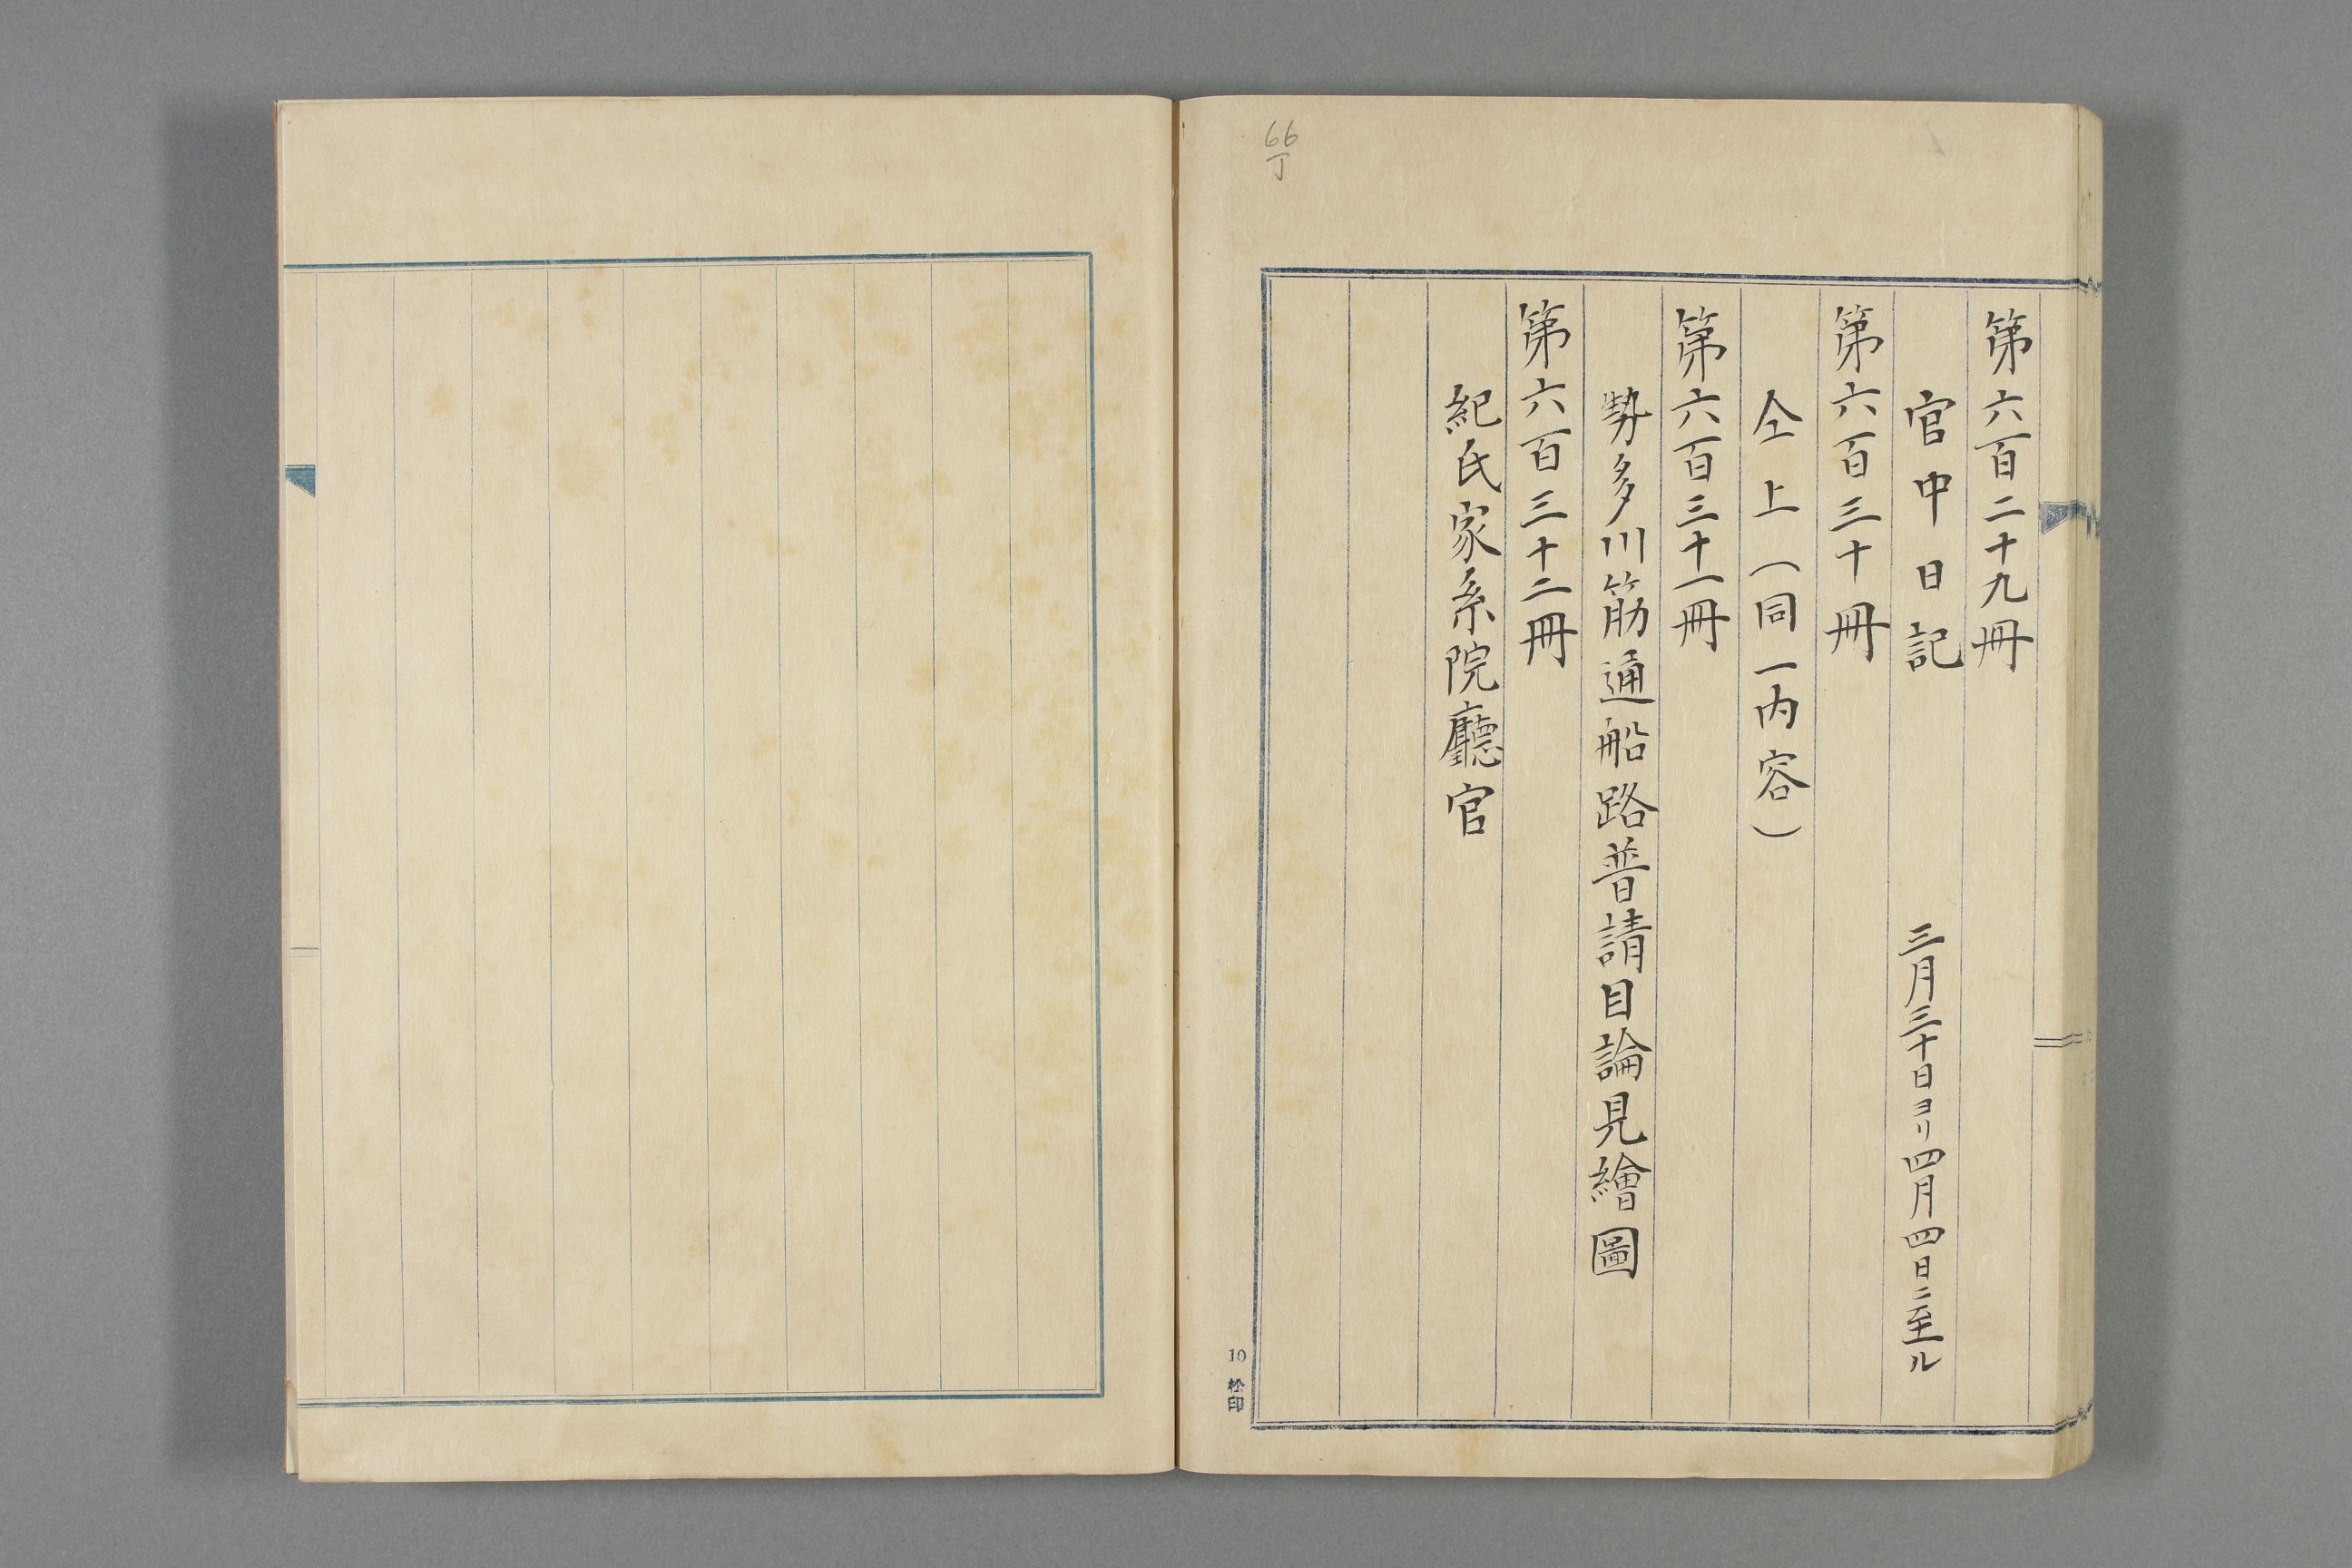 第六百二十九冊
官中日記 三月三十日ヨリ四月四日ニ至ル
第六百三十冊
仝上(同一内容)
第六百三十一冊
勢多川筋通船路普請目論見繪圖
第六百三十二冊
紀氏家系院廳官
66丁
10 松印